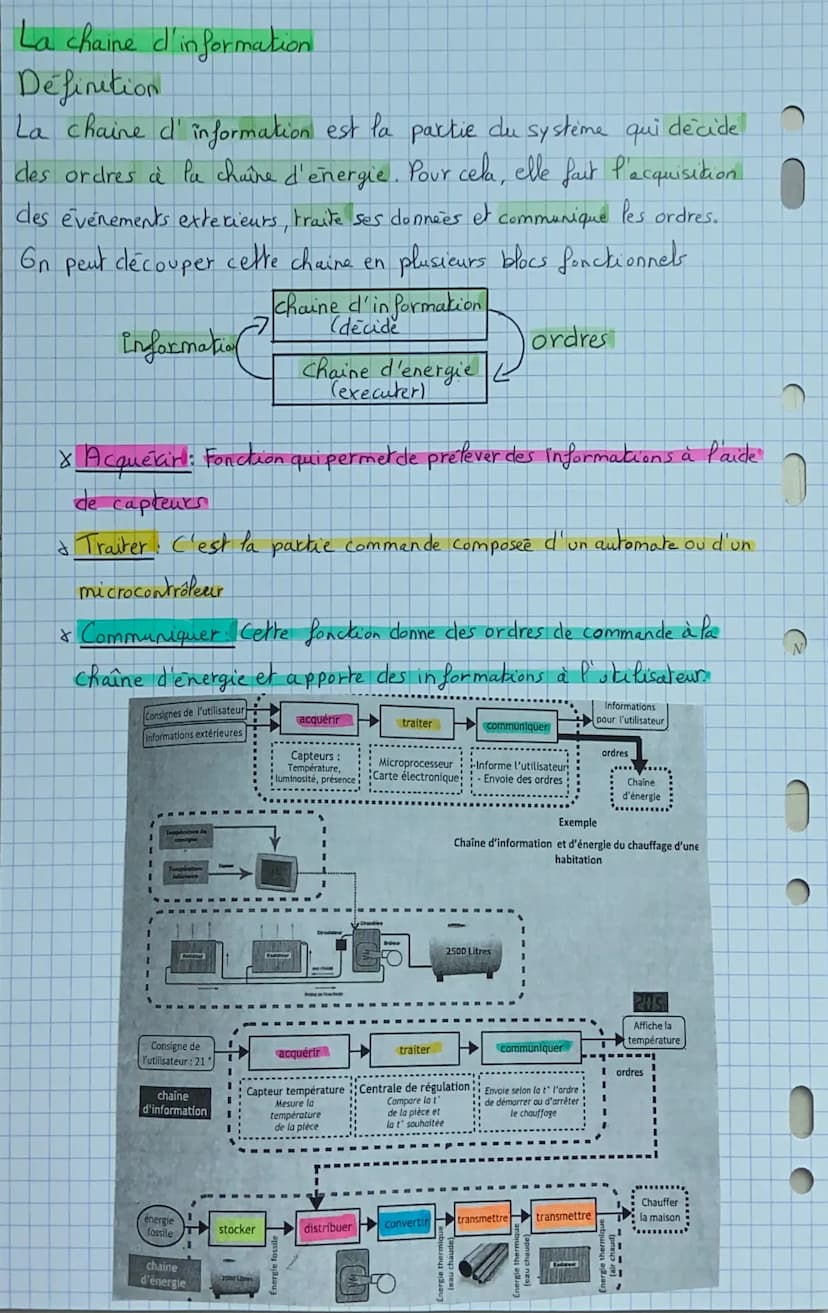 La chaine d'information
Définition
La chaine d'information est la partie du système qui décide
des ordres à la chaîne d'énergie. Pour cela, elle fait l'acquisition
des événements exterieurs, traite ses données et communique les ordres.
On peut découper cette chaine en plusieurs blocs fonctionnels
chaine d'information
(décide
Information
ordres
chaine d'energie
(executer)
Acquérir : Fonction qui permet de prélever des informations à l'aide
de capteurs
Traiter : C'est la partie commande composée d'un automate ou d'un
microcontrôleur
Communiquer : Cette fonction donne des ordres de commande à la
chaîne d'énergie et apporte des informations à l'utilisateur.
Consignes de l'utilisateur
Informations extérieures
acquérir
traiter
communiquer
Informations
pour l'utilisateur
ordres
Capteurs :
Température,
luminosité, présence
Microprocesseur
Carte électronique
-Informe l'utilisateur
- Envoie des ordres
Chaîne
d'énergie
Exemple
Chaîne d'information et d'énergie du chauffage d'une
habitation
Température de
consigne
Température
Chaudière
Circulateur
Brûleur
Radiateur
Radiateur
2500 Litres
24.5
Consigne de
l'utilisateur : 21 °
acquérir
traiter
communiquer
Affiche la
température
ordres
chaîne
d'information
Capteur température
Mesure la
température
de la pièce
Centrale de régulation
Compare la t°
de la pièce et
la t° souhaitée
Envoie selon la t° l'ordre
de démarrer ou d'arrêter
le chauffage
énergie
fossile
stocker
distribuer
convertir
transmettre
transmettre
Chauffer
la maison
chaîne
d'énergie
2500 Litres
Énergie fossile
Énergie thermique
(eau chaude)
Énergie thermique
(eau chaude)
Radiateur
Énergie thermique
(air chaud)
N